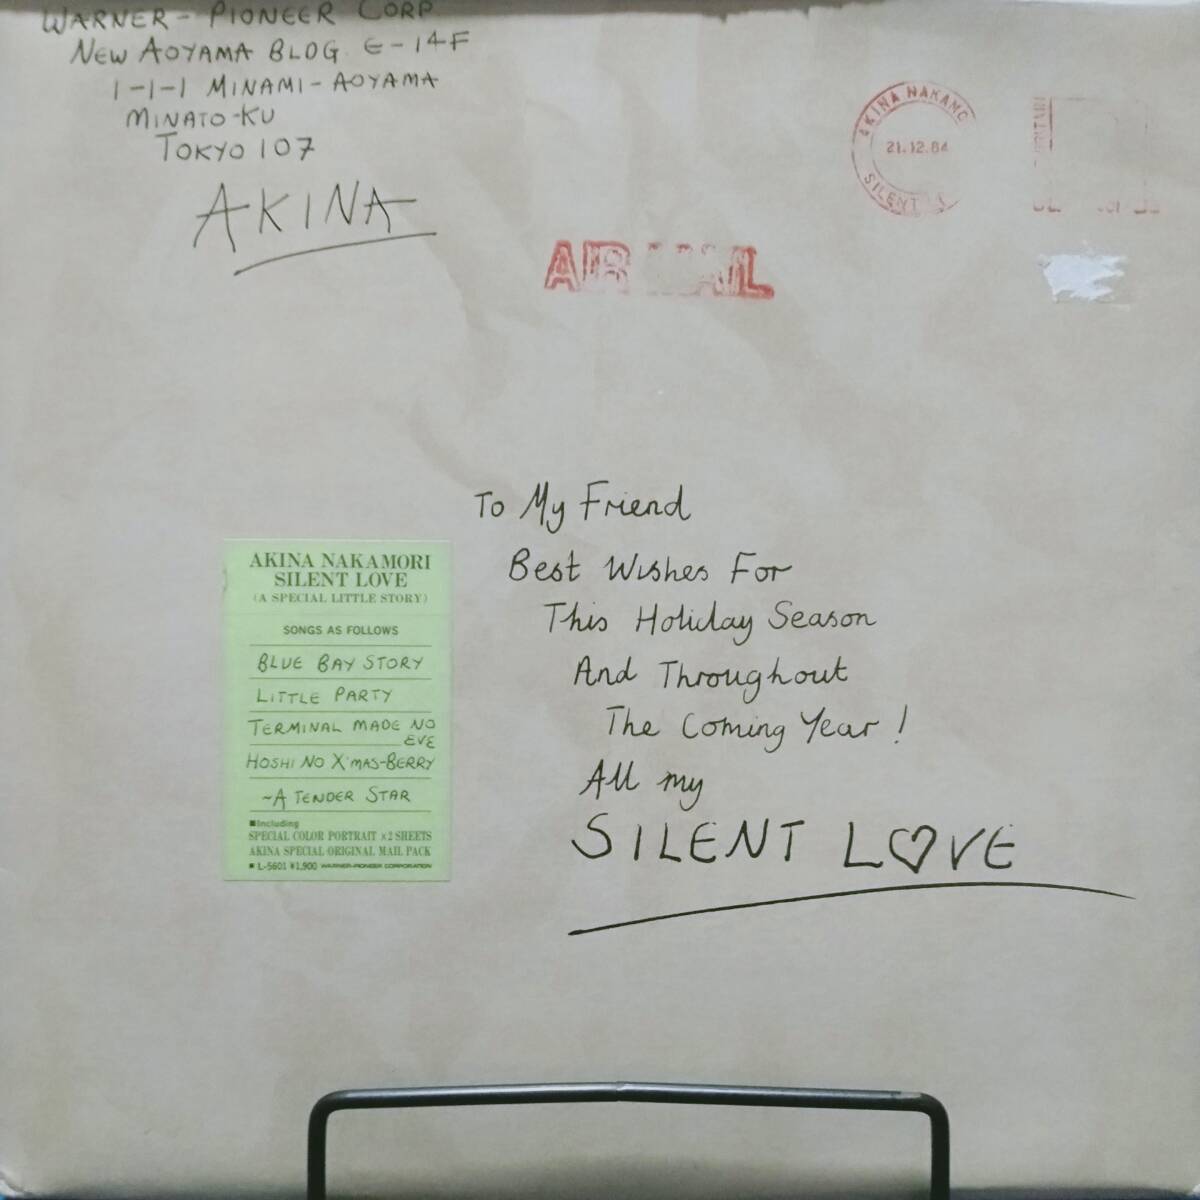 WARNER - PIONEER CORP
NEW AOYAMA BLDG E-14F
1-1-1 MINAMI-AOYAMA
MINATO-KU
TOKYO 107
AKINA
AKINA NAKAMO
21.12.84
SILENT
AIR MAIL
To My Friend
Best Wishes For
This Holiday Season
And Throughout
The Coming Year!
All my
SILENT L♡VE
AKINA NAKAMORI
SILENT LOVE
(A SPECIAL LITTLE STORY)
SONGS AS FOLLOWS
BLUE BAY STORY
LITTLE PARTY
TERMINAL MADE NO
EVE
HOSHI NO X'MAS-BERRY
~A TENDER STAR
■Including
SPECIAL COLOR PORTRAIT ×2 SHEETS
AKINA SPECIAL ORIGINAL MAIL PACK
■ L-5601 ¥1,900 WARNER-PIONEER CORPORATION